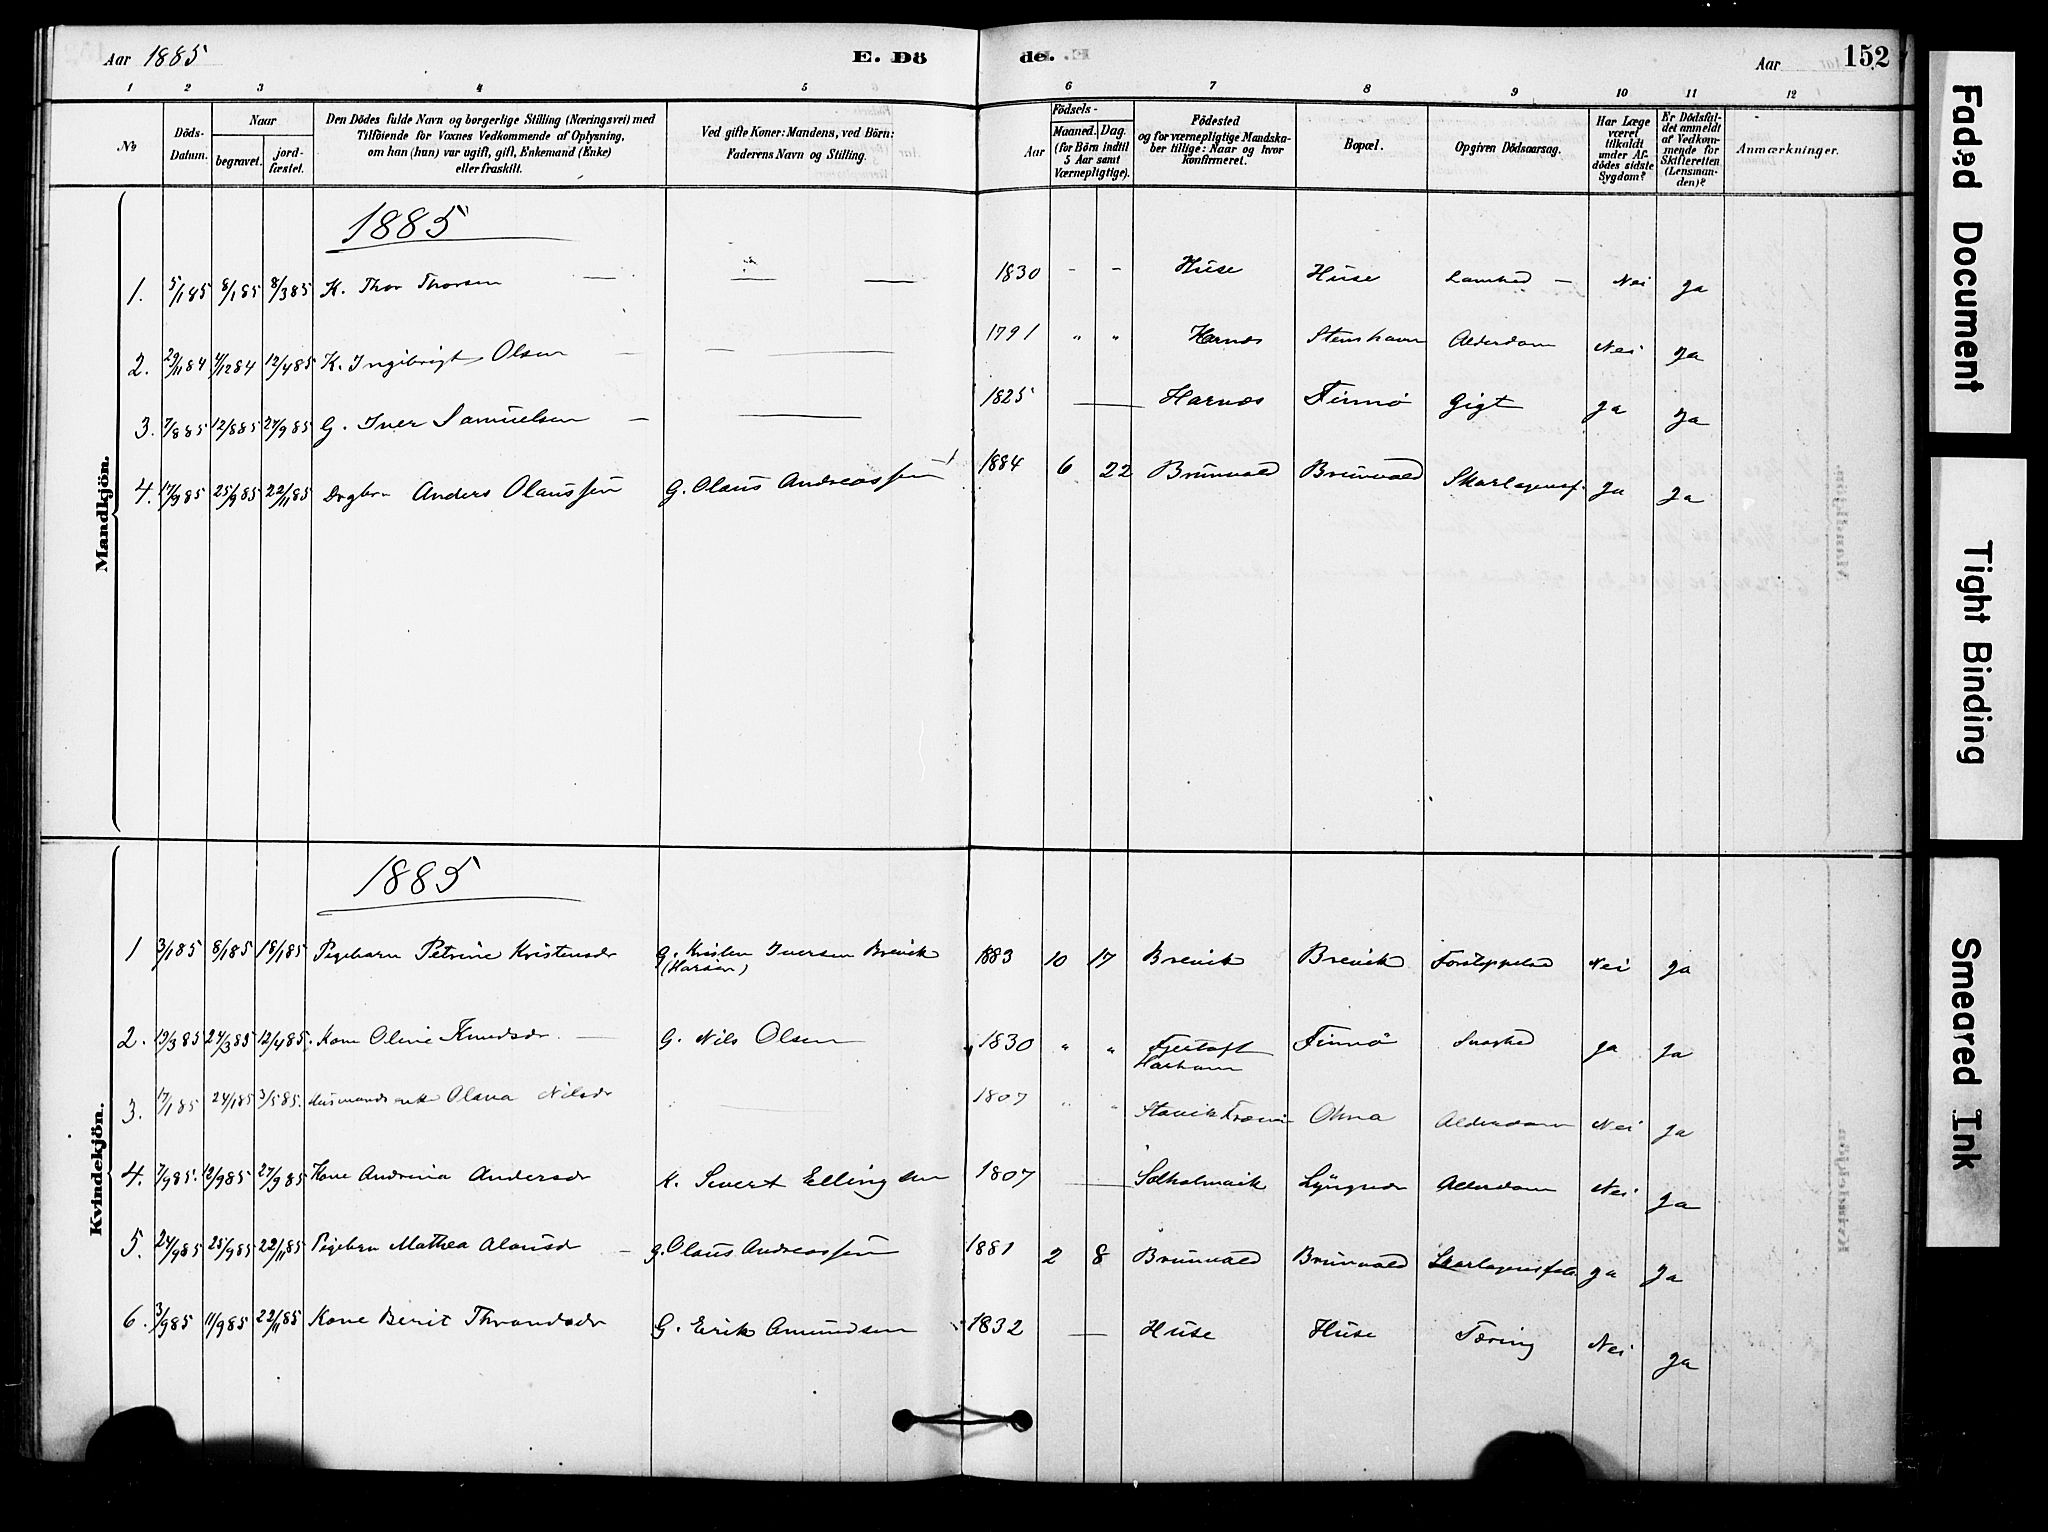 Aar 1885 E. Dö de. Aar 152
1 2 3 4 5 6 7 8 9 10 11 12
№ Döds-Datum. Naar begravet. jordfæstet.
Den Dödes fulde Navn og borgerlige Stilling (Næringsvei) med
Tilföiende for Voxnes Vedkommende af Oplysning,
om han (hun) var ugift, gift, Enkemand (Enke)
eller fraskilt.
Ved gifte Koner: Mandens, ved Börn:
Faderens Navn og Stilling.
Aar Födsels- Maaned. Dag. (for Börn indtil 5 Aar samt Værnepligtige).
Födested
og for værnepligtige Mandskaber tillige: Naar og hvor Konfirmeret.
Bopæl.
Opgiven Dödsaarsag.
Har Læge været tilkaldt under Afdödes sidste Sygdom?
Er Dödsfaldet anmeldt af Vedkommende for Skifteretten (Lensmanden)?
Anmærkninger.
Mandkjön.
1885
1. 5/1 85 8/1 85 8/3 85 K. Thor Thorsen — — — 1830 - - Huse Huse — Nei Ja
2. 29/11 84 4/12 84 12/4 85 K. Ingibrigt Olsen — — 1791 " " Harnæs Stenshavn Alderdom Nei Ja
3. 7/8 85 12/8 85 27/9 85 G. Iver Samuelsen — — 1825 — Harnæs Finnö Gigt Ja Ja
4. 17/9 85 25/9 85 22/11 85 Drgbrn Anders Olaussen G. Olaus Andreassen 1884 6 22 Brunvold Brunvold Skarlagensf. Ja Ja
Kvindekjön.
1885
1 3/1 85 8/1 85 18/1 85 Pigebarn Petrine Kristensdr G. Kristen Iversen Brevik 1883 10 17 Brevik Brevik Nei Ja
2. 19/3 85 24/3 85 12/4 85. Kone Oline Knudsdr — G. Nils Olsen 1830 " " Fjertoft Harham Finnö Ja Ja
3. 17/1 85 24/1 85 3/5 85. Olava Nilsdr — 1807 " " Alderdom Nei Ja
4. 7/9 85. 12/9 85 27/9 85 Kone Andrina Andersdr K. Sivert Ellingsen 1807 — Alderdom Nei Ja
5. 24/9 85 25/9 85 22/11 85 Pigebrn Mathea Olausd — G. Olaus Andreassen 1881 2 8 Brunvold Brunvold Skarlagensfeb. Ja Ja
6. 3/9 85 11/9 85 22/11 85 Kone Berit Throndsdr G. Erik Amundsen 1832 — Huse Huse Tæring Nei Ja
Faded Document
Tight Binding
Smeared Ink